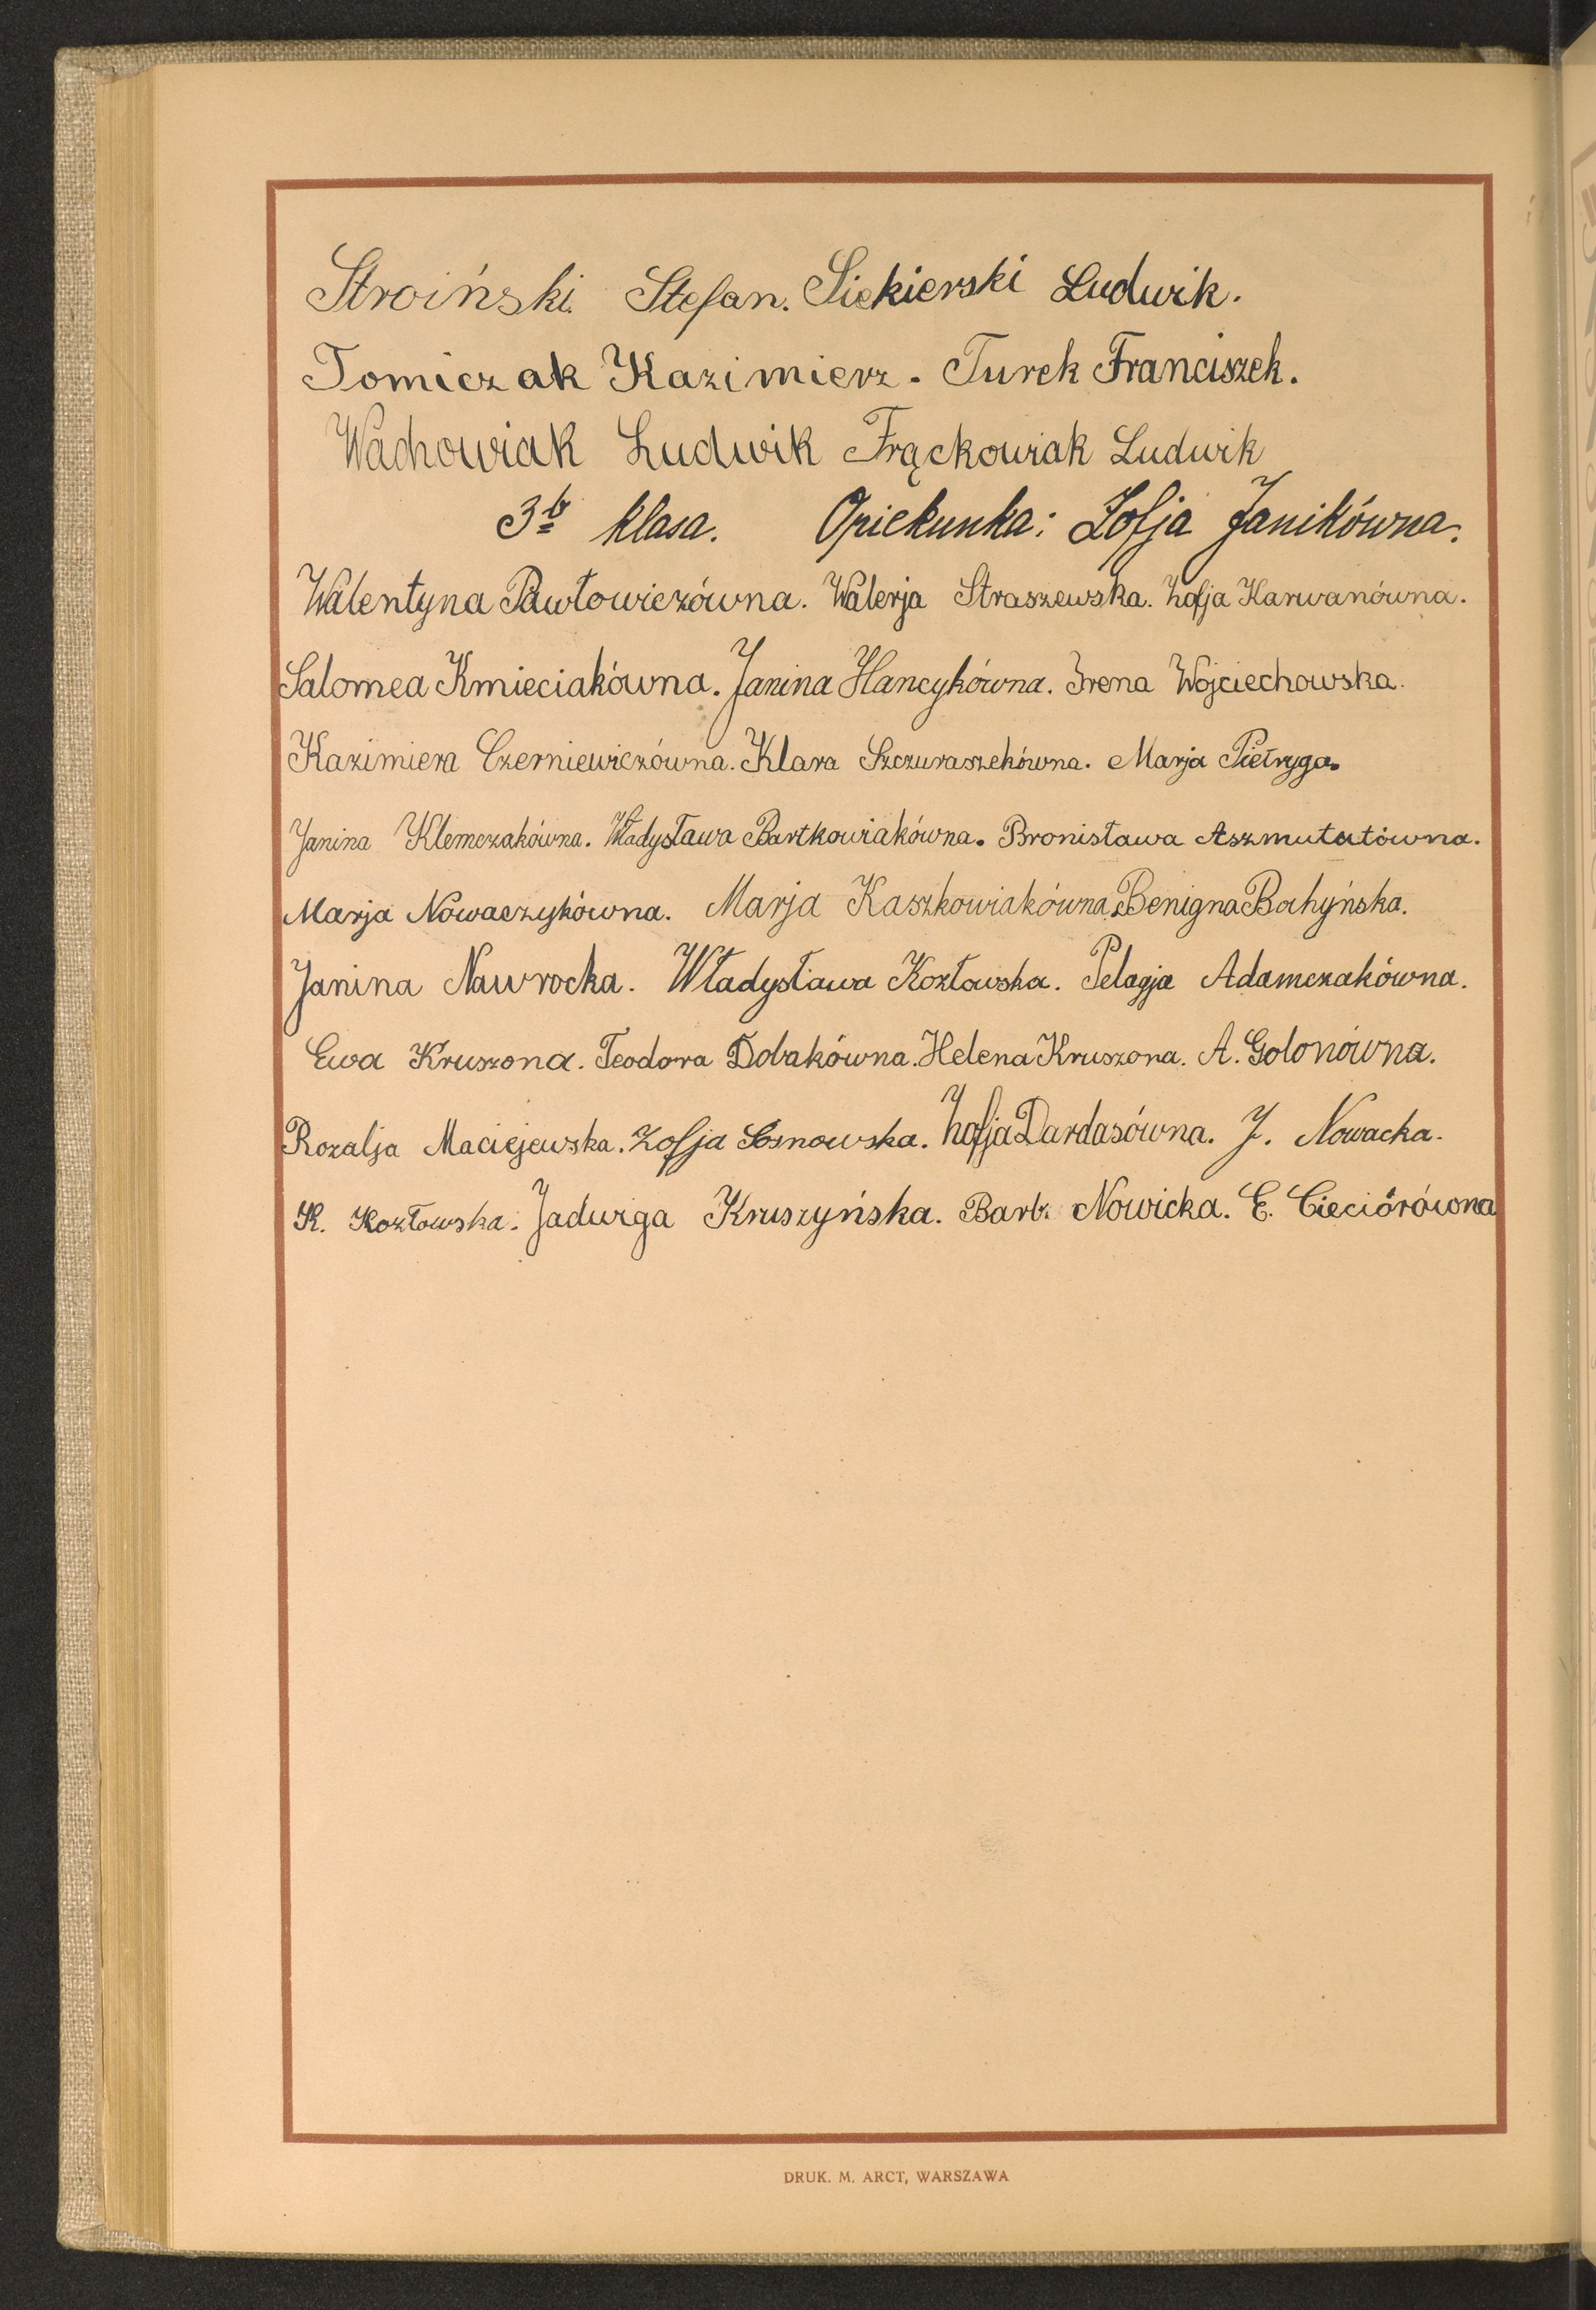 Stroiński Stefan. Siekierski Ludwik.
Tomiczak Kazimierz. Turek Franciszek.
Wachowiak Ludwik Frąckowiak Ludwik
3b klasa. Opiekunka: Zofja Janikówna.
Walentyna Pawłowiczówna. Walerja Straszewska. Zofja Karwanówna.
Salomea Kmieciakówna. Janina Hancykówna. Irena Wojciechowska.
Kazimiera Czerniewiczówna. Klara Szczuraszekówna. Marja Pietryga.
Janina Klemczakówna. Władysława Bartkowiakówna. Bronisława Aszmutatówna.
Marja Nowaczykówna. Marja Kaszkowiakówna. Benigna Bachyńska.
Janina Nawrocka. Władysława Kozłowska. Pelagja Adamczakówna.
Ewa Kruszona. Teodora Dobakówna. Helena Kruszona. A. Golonówna.
Rozalja Maciejewska. Zofja Sosnowska. Zofja Dardasówna. J. Nowacka.
K. Kozłowska. Jadwiga Kruszyńska. Barb. Nowicka. E. Cieciórówna
DRUK. M. ARCT, WARSZAWA